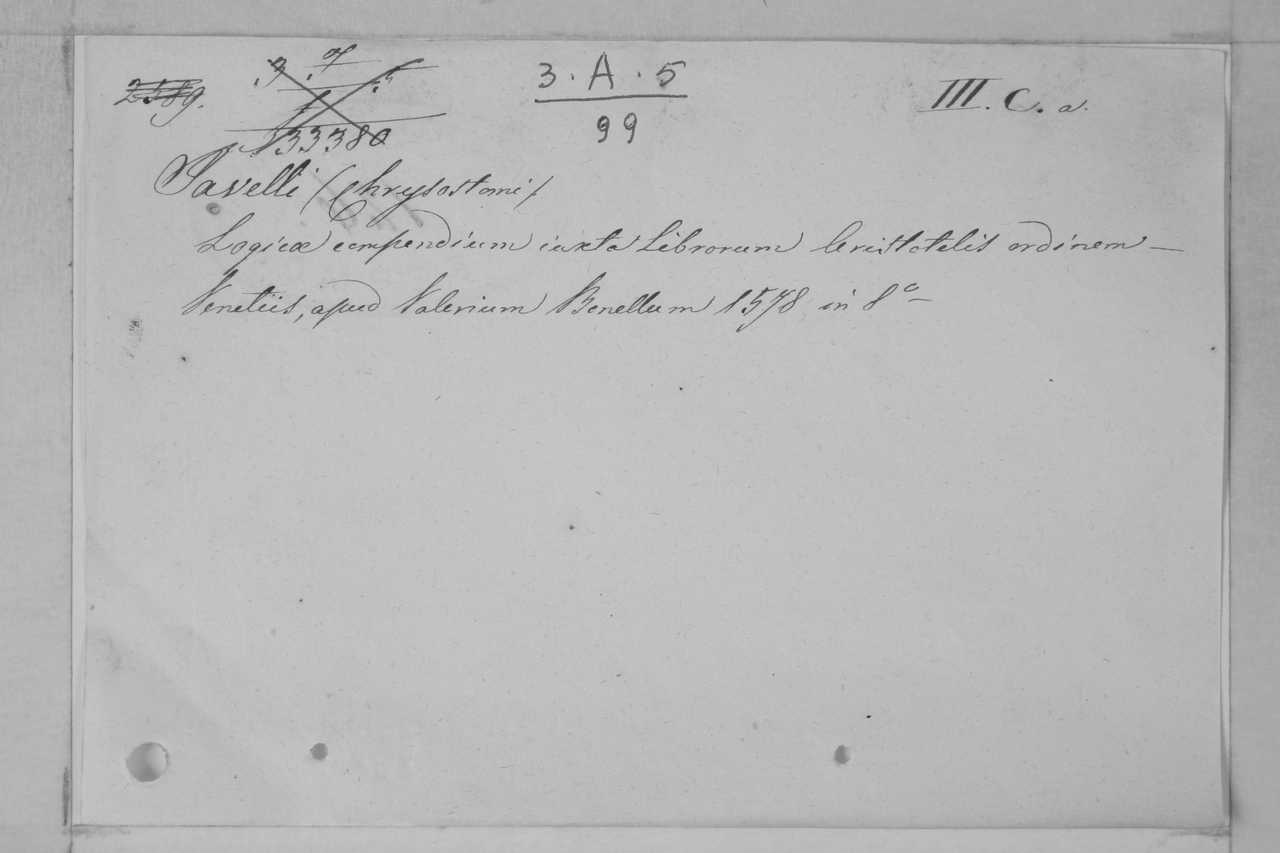 2589.
3 . A . 5
99
III. C. a.
33380
Javelli (Chrysostomi)
Logicæ compendium iuxta Librorum Aristotelis ordinem —
Venetiis, apud Valerium Bonellum 1578 in 8° —